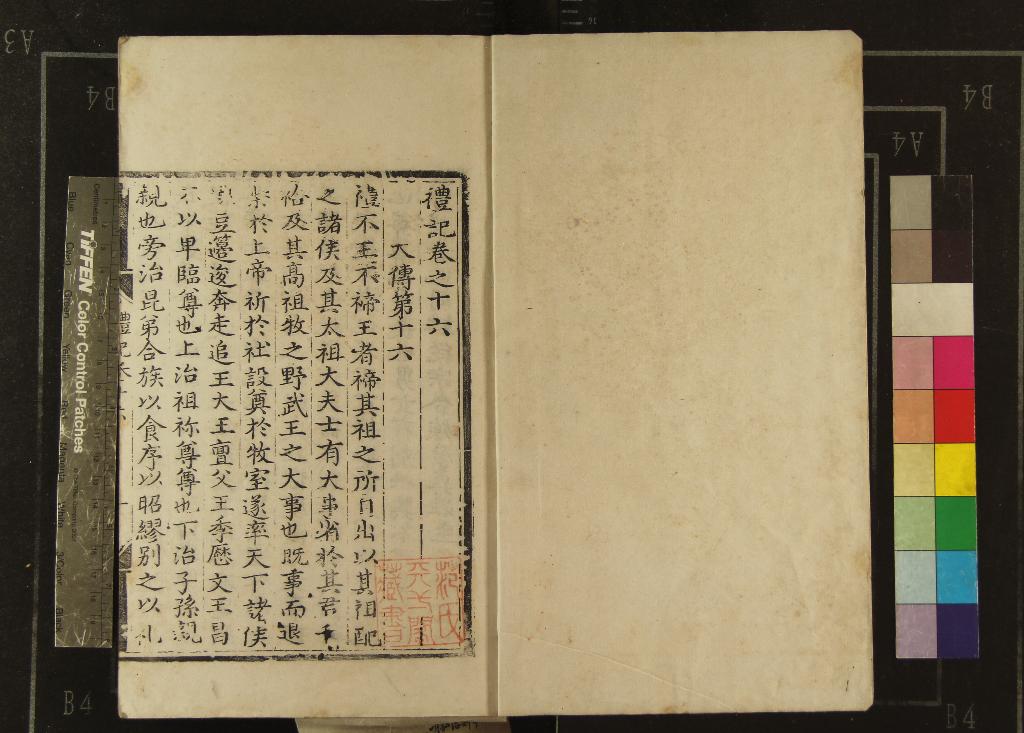 禮記卷之十六
大傳第十六
禮不王不禘王者禘其祖之所自出以其祖配
之諸侯及其太祖大夫士有大事省於其君干
祫及其高祖牧之野武王之大事也既事而退
柴於上帝祈於社設奠於牧室遂率天下諸侯
豆籩逡奔走追王大王亶父王季歷文王昌
不以卑臨尊也上治祖祢尊尊也下治子孫親
親也旁治昆弟合族以食序以昭繆別之以礼
范氏
天一閣
藏書
TIFFEN Color Control Patches
A3
B4
B4
A4
B4
B4